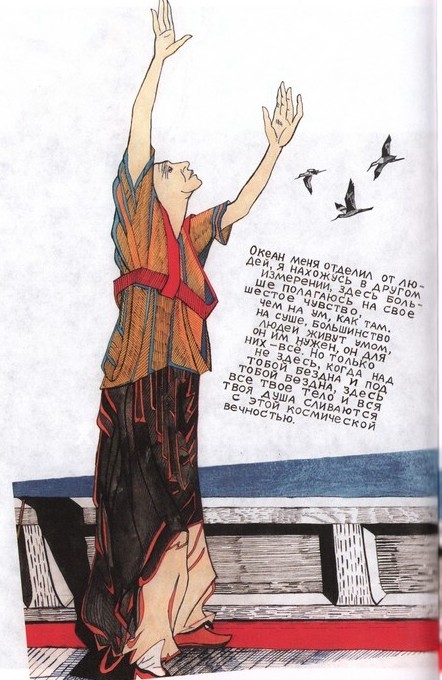 Океан меня отделил от лю-
дей, я нахожусь в другом
измерении, здесь боль-
ше полагаюсь на свое
шестое чувство,
чем на ум, как там,
на суше, большинство
людей живут умом,
он им нужен, он для
них – всё. Но только
не здесь, когда над
тобой бездна и под
тобой бездна, здесь
все твое тело и вся
твоя душа сливаются
с этой космической
вечностью.